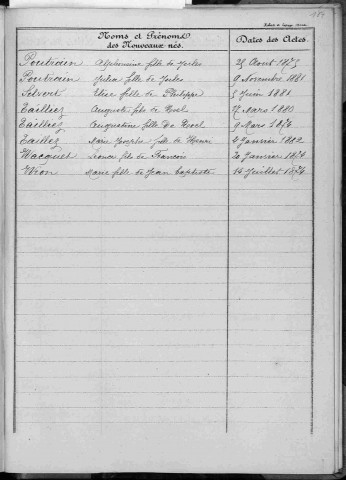 184
Noms et Prénoms des Nouveaux-nés. Dates des Actes.
Poutrain Alphonsine fille de Jules 25 Aout 1875
Poutrain Julia fille de Jules 9 Novembre 1881
Elise fille de Philippe 5 Juin 1881
Tailliez Auguste fils de Noel 17 Mars 1880
Tailliez Augustine fille de Noel 9 Mars 1874
Tailliez Marie Josèphe fille de Henri 4 Janvier 1882
Wacquet Léonce fils de Francois 20 Janvier 1874
Wion Marie fille de Jean Baptiste 14 Juillet 1874